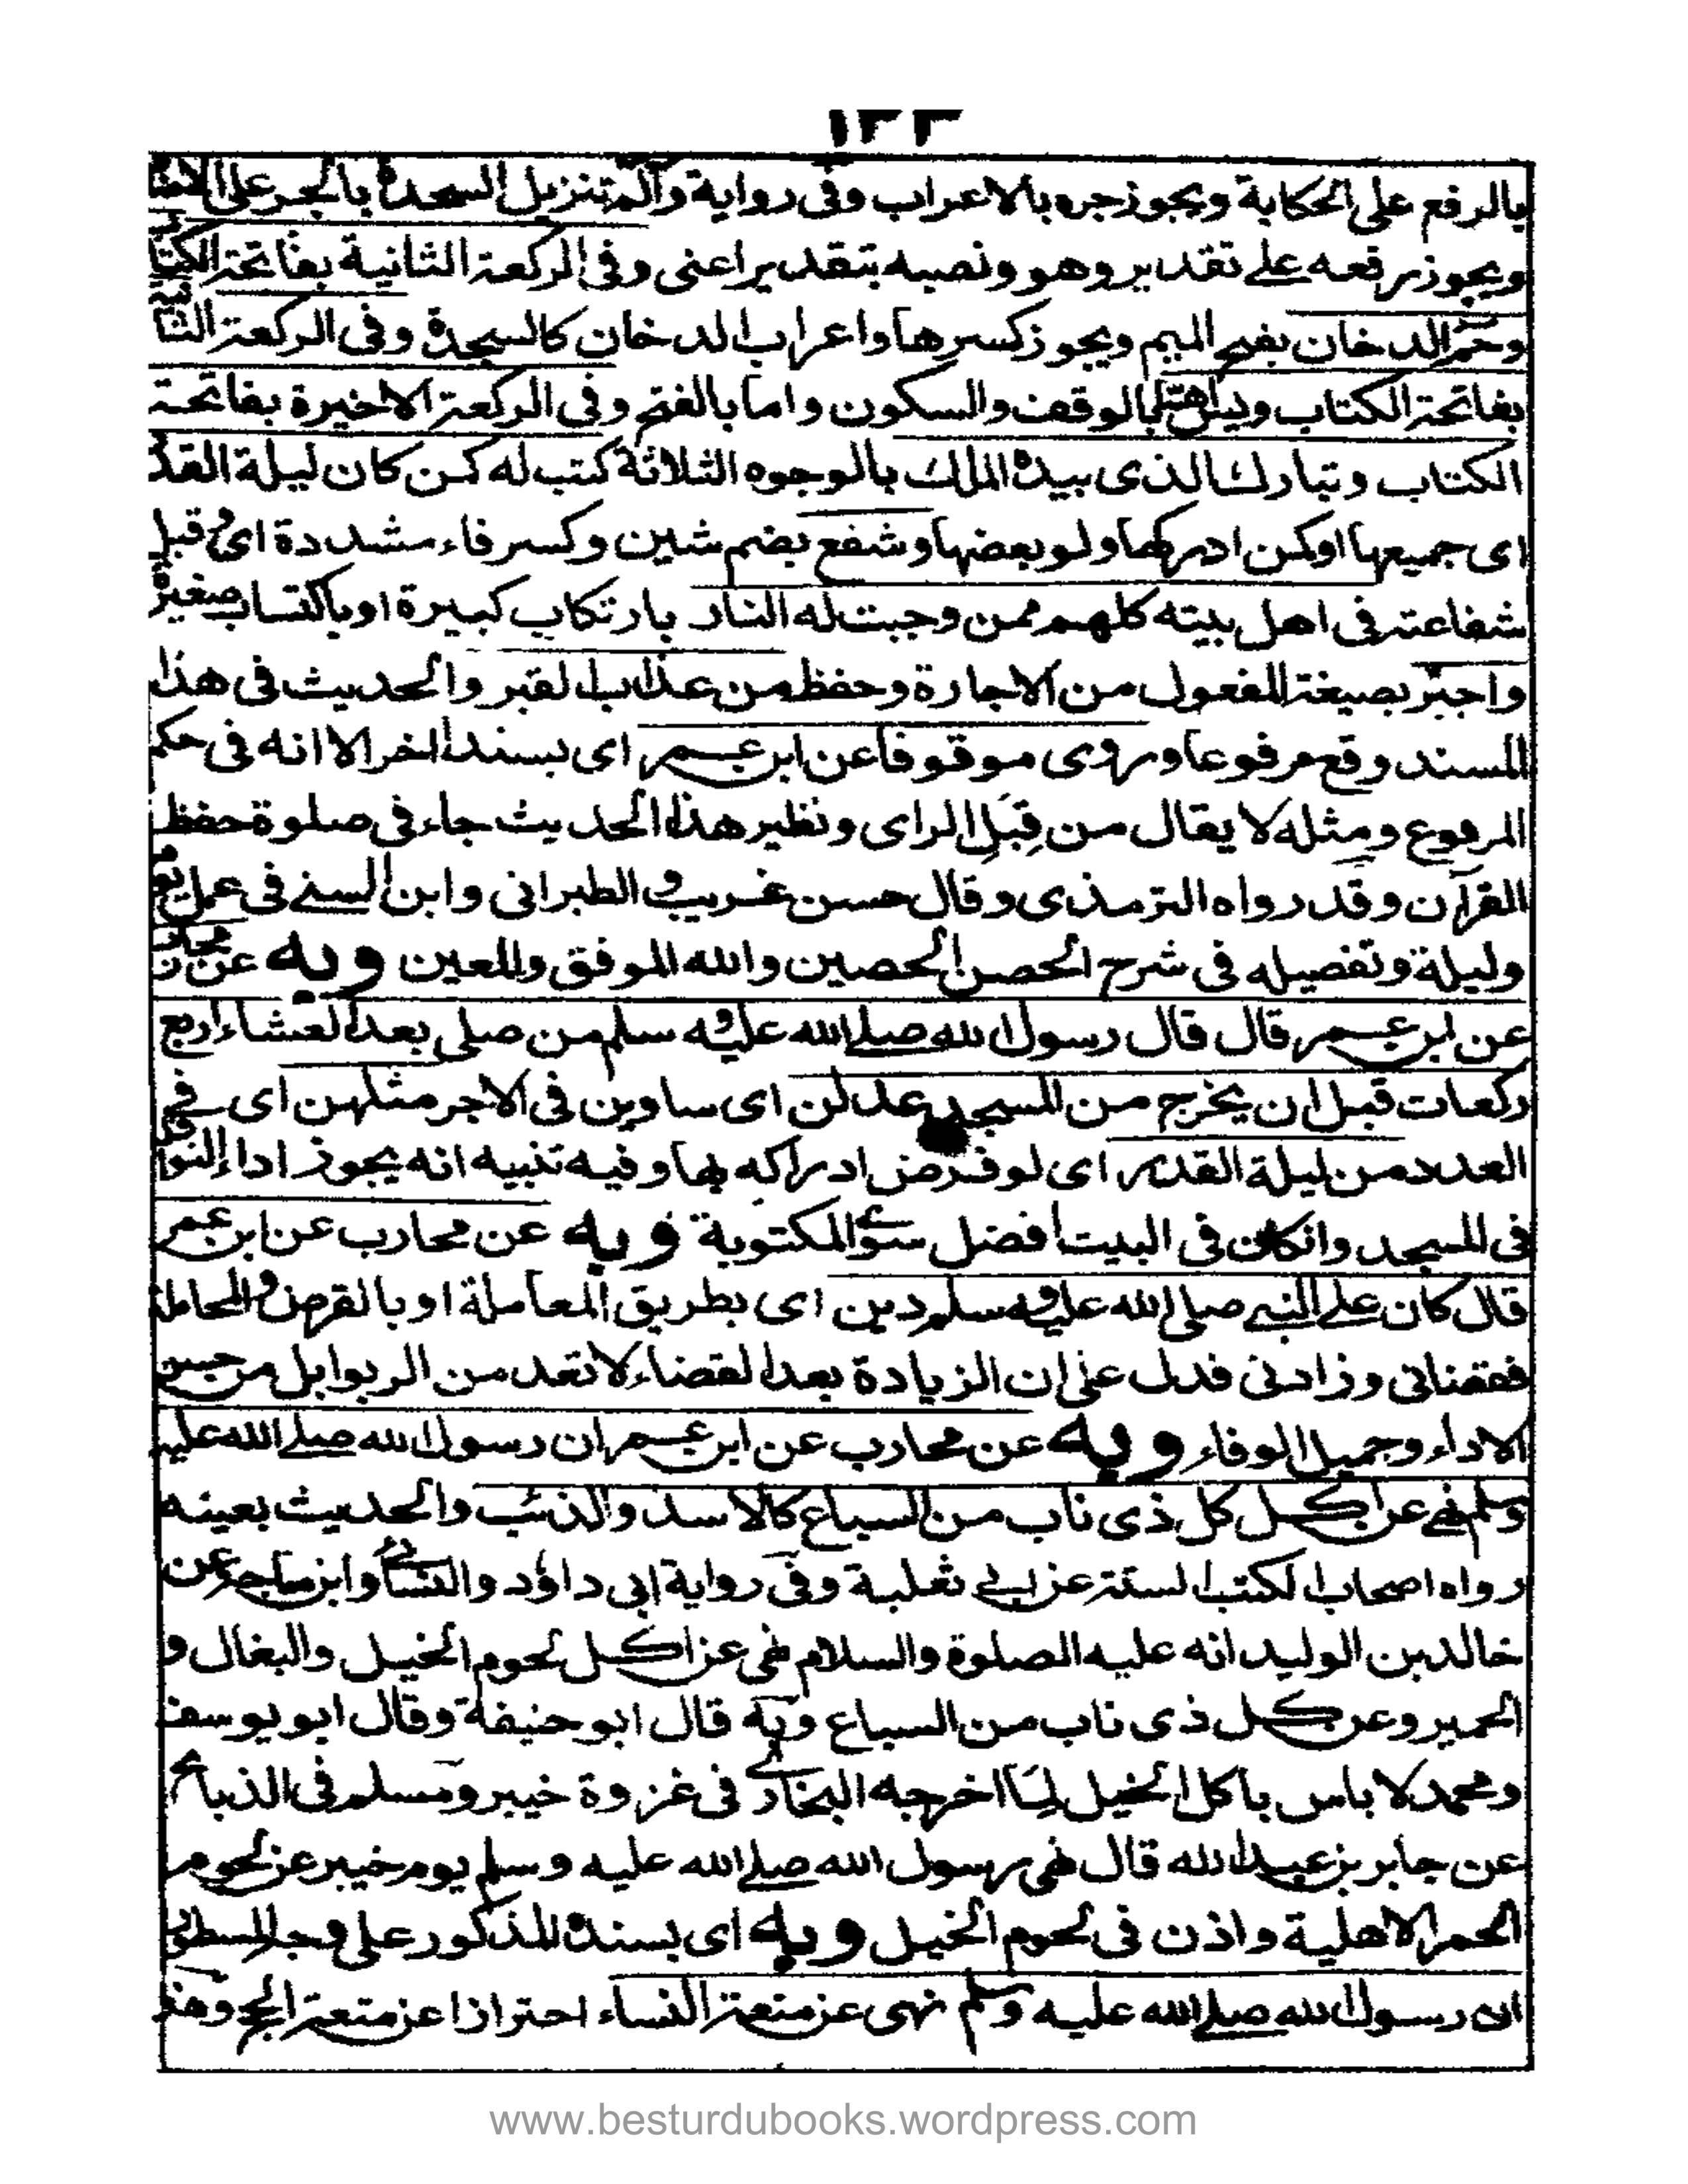 ١٣٣
بالرفع على الحكاية ويجوز جره بالاعراب وفى رواية والم تنزيل السجدة بالجر على الاضا
ويجوز رفعه على تقدير وهو ونصبه بتقدير اعنى وفى الركعة الثانية بفاتحة الكتاب
وحم الدخان بفتح الميم ويجوز كسرها واعراب الدخان كالسجدة وفى الركعة الثالثة
بفاتحة الكتاب ويس اما بالوقف والسكون واما بالفتح وفى الركعة الاخيرة بفاتحة
الكتاب وتبارك الذى بيده الملك بالوجوه الثلاثة كتب له كمن كان ليلة القدر
اى جميعها او كمن ادركها ولو بعضها وشفع بضم شين وكسر فاء مشددة اى قبل
شفاعته فى اهل بيته كلهم ممن وجبت له النار بارتكاب كبيرة او باكتساب صغيرة
واجير بصيغة المفعول من الاجارة وحفظ من عذاب القبر والحديث فى هذا
المسند وقع مرفوعا وروى موقوفا عن ابن عمر اى بسند اخر الا انه فى حكم
المرفوع ومثله لا يقال من قِبَلِ الراى ونظير هذا الحديث جاء فى صلوة حفظ
القرآن وقد رواه الترمذى وقال حسن غريب و الطبرانى وابن السنى فى عمل يوم
وليلة وتفصيله فى شرح الحصن الحصين والله الموفق والمعين وبه عن محارب
عن ابن عمر قال قال رسول الله صلى الله عليه و سلم من صلى بعد العشاء اربع
ركعات قبل ان يخرج من المسجد عدلن اى ساوين فى الاجر مثلهن اى فى
العدد من ليلة القدر اى لو فرض ادراكه بها وفيه تنبيه انه يجوز اداء النوافل
فى المسجد وان كان فى البيت افضل سوى المكتوبة وبه عن محارب عن ابن عمر
قال كان على النبى صلى الله عليه و سلم دين اى بطريق المعاملة او بالقرض و المجاملة
فقضانى وزادنى فدل على ان الزيادة بعد القضاء لا تعد من الربوا بل من حسن
الاداء وجميل الوفاء وبه عن محارب عن ابن عمر ان رسول الله صلى الله عليه
وسلم نهى عن اكل كل ذى ناب من السباع كالاسد والذئب والحديث بعينه
رواه اصحاب الكتب الستة عن ابى ثعلبة وفى رواية ابى داؤد والنسائى وابن ماجه عن
خالد بن الوليد انه عليه الصلوة والسلام نهى عن اكل لحوم الخيل والبغال و
الحمير وعن كل ذى ناب من السباع وبه قال ابو حنيفة وقال ابو يوسف
ومحمد لا باس باكل الخيل لما اخرجه البخارى فى غزوة خيبر ومسلم فى الذبائح
عن جابر بن عبد الله قال نهى رسول الله صلى الله عليه وسلم يوم خيبر عن لحوم
الحمر الاهلية واذن فى لحوم الخيل وبه اى بسنده المذكور على وجه المسطور
ان رسول الله صلى الله عليه وسلم نهى عن متعة النساء احترازا عن متعة الحج وهذ
www.besturdubooks.wordpress.com